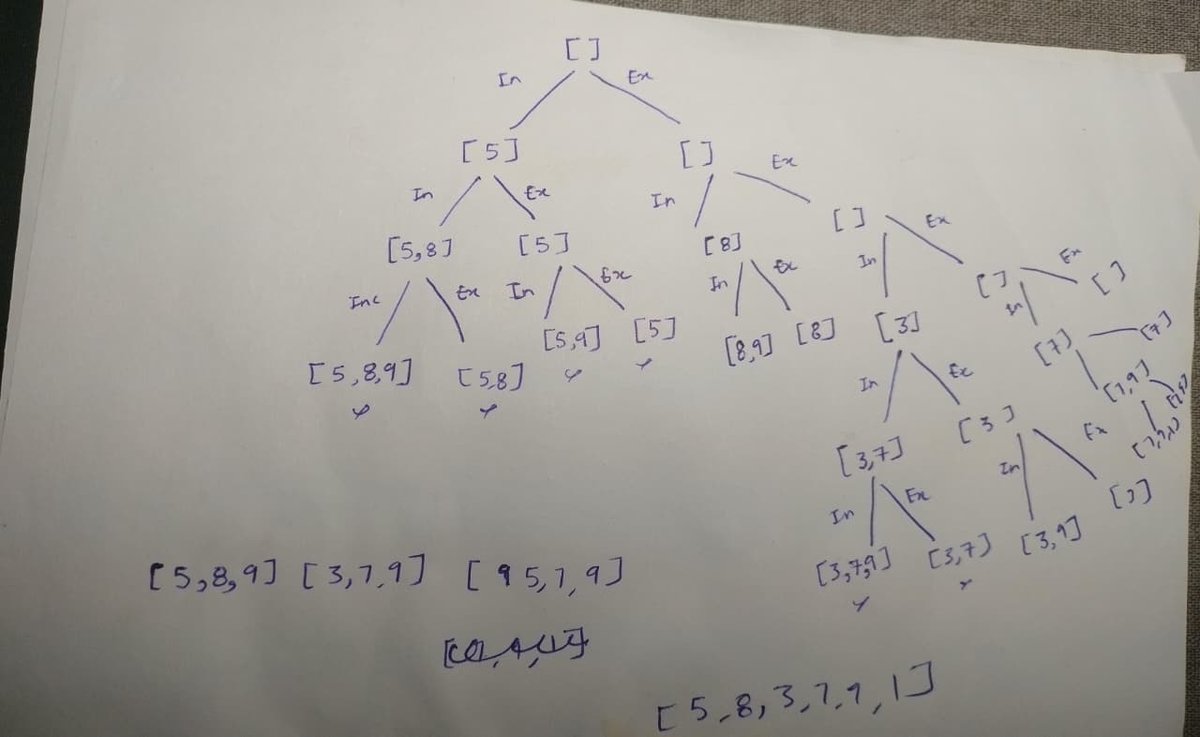 [ ]
In Ex
[5] [ ]
In Ex In Ex
[5,8] [5] [8] [ ] Ex
Inc Ex In Ex In Ex In [ ] Ex [ ]
[5,8,9] [5,8] [5,9] [5] [8,9] [8] [3] In [7] [7]
In Ex [7,9]
[3,7] [3]
In Ex In Ex
[3,7,9] [3,7] [3,9]
[5,8,9] [3,7,9] [5,7,9]
[5,8,3,7,9,1]